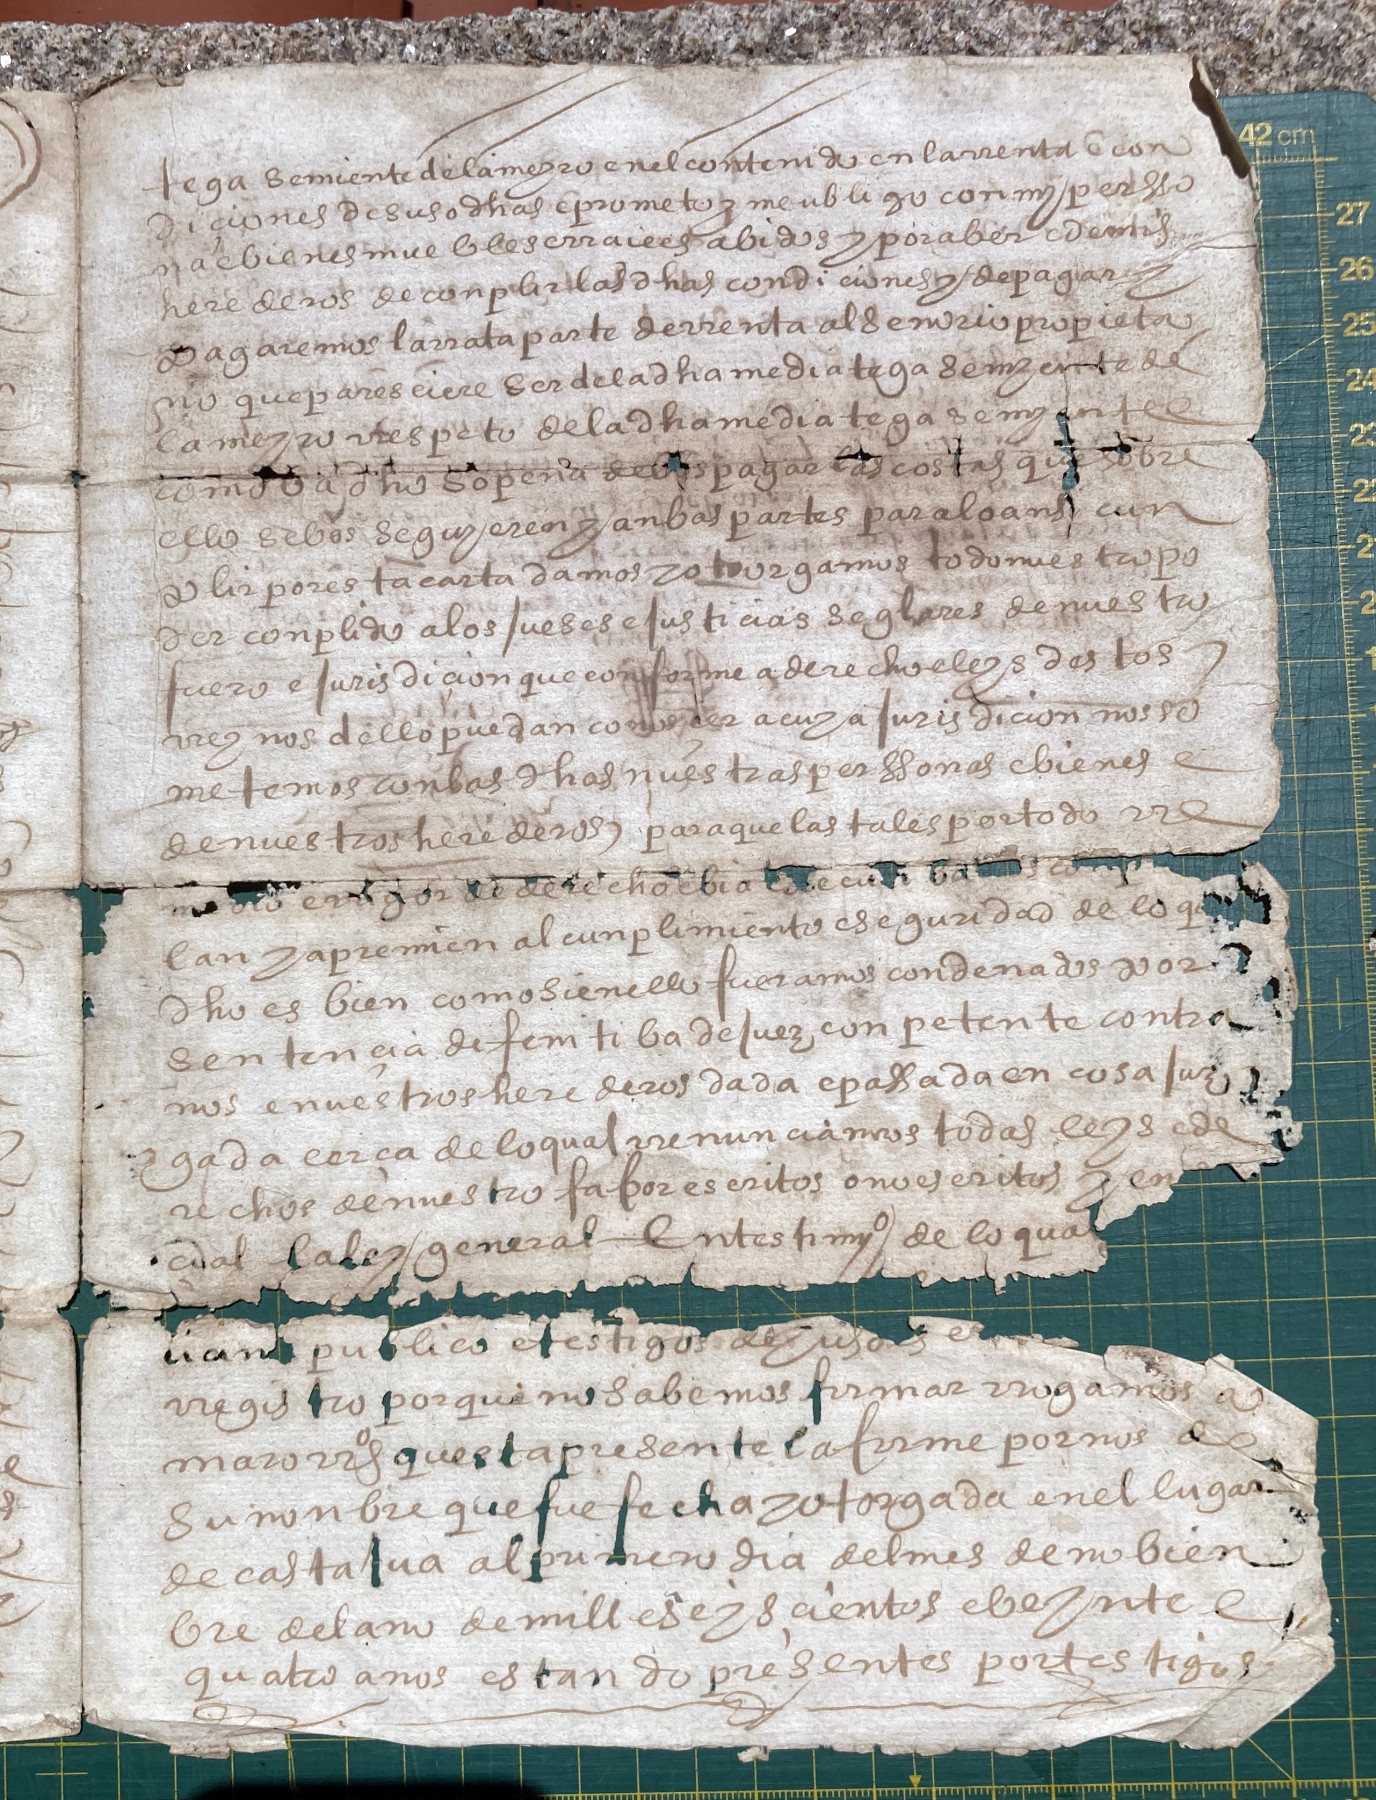 tega semiente de lameyro en el contenido en la rrenta e con
diciones desuso dhas e prometo y me ubligo con my persso
na e bienes muebles e rraices abidos y por aber e de mis
herederos de conplir las dhas condiciones y de pagar y
pagaremos la rrata parte de rrenta al senorio propieta
rio que paresciere ser de la dha media tega semyente de
lameyro rrespeto de la dha media tega semyente
como ba dho so pena de os pagar las costas que sobre
ello se bos seguyeren y anbas partes para lo ansi cun
plir por esta carta damos y otorgamos todo nuestro po
der conplido a los jueses e justicias seglares de nuestro
fuero e jurisdicion que conforme a derecho e leys destos
rreynos dello puedan conoscer a cuya jurisdicion nos so
metemos con las dhas nuestras perssonas e bienes e
de nuestros herederos para que las tales por todo rre
medio e rrigor de derecho e bia executiba nos conp
lan y apremien al cunplimiento e seguridad de lo que
dho es bien como si en ello fueramos condenados por
sentencia difinitiba de juez conpetente contra
nos e nuestros herederos dada e passada en cosa juz
gada cerca de lo qual rrenunciamos todas leys e de
rechos de nuestro fabor escritos o no escritos y en
cial la ley general En testimyº de lo qual
ivano publico e testigos de yuso
rregistro porque no sabemos firmar rrogamos a
maro rrºs que esta presente la firme por nos de
su nonbre que fue fecha y otorgada en el lugar
de castalua al primero dia del mes de nobien
bre del ano de mill e seys cientos e beynte e
quatro anos estando presentes por testigos